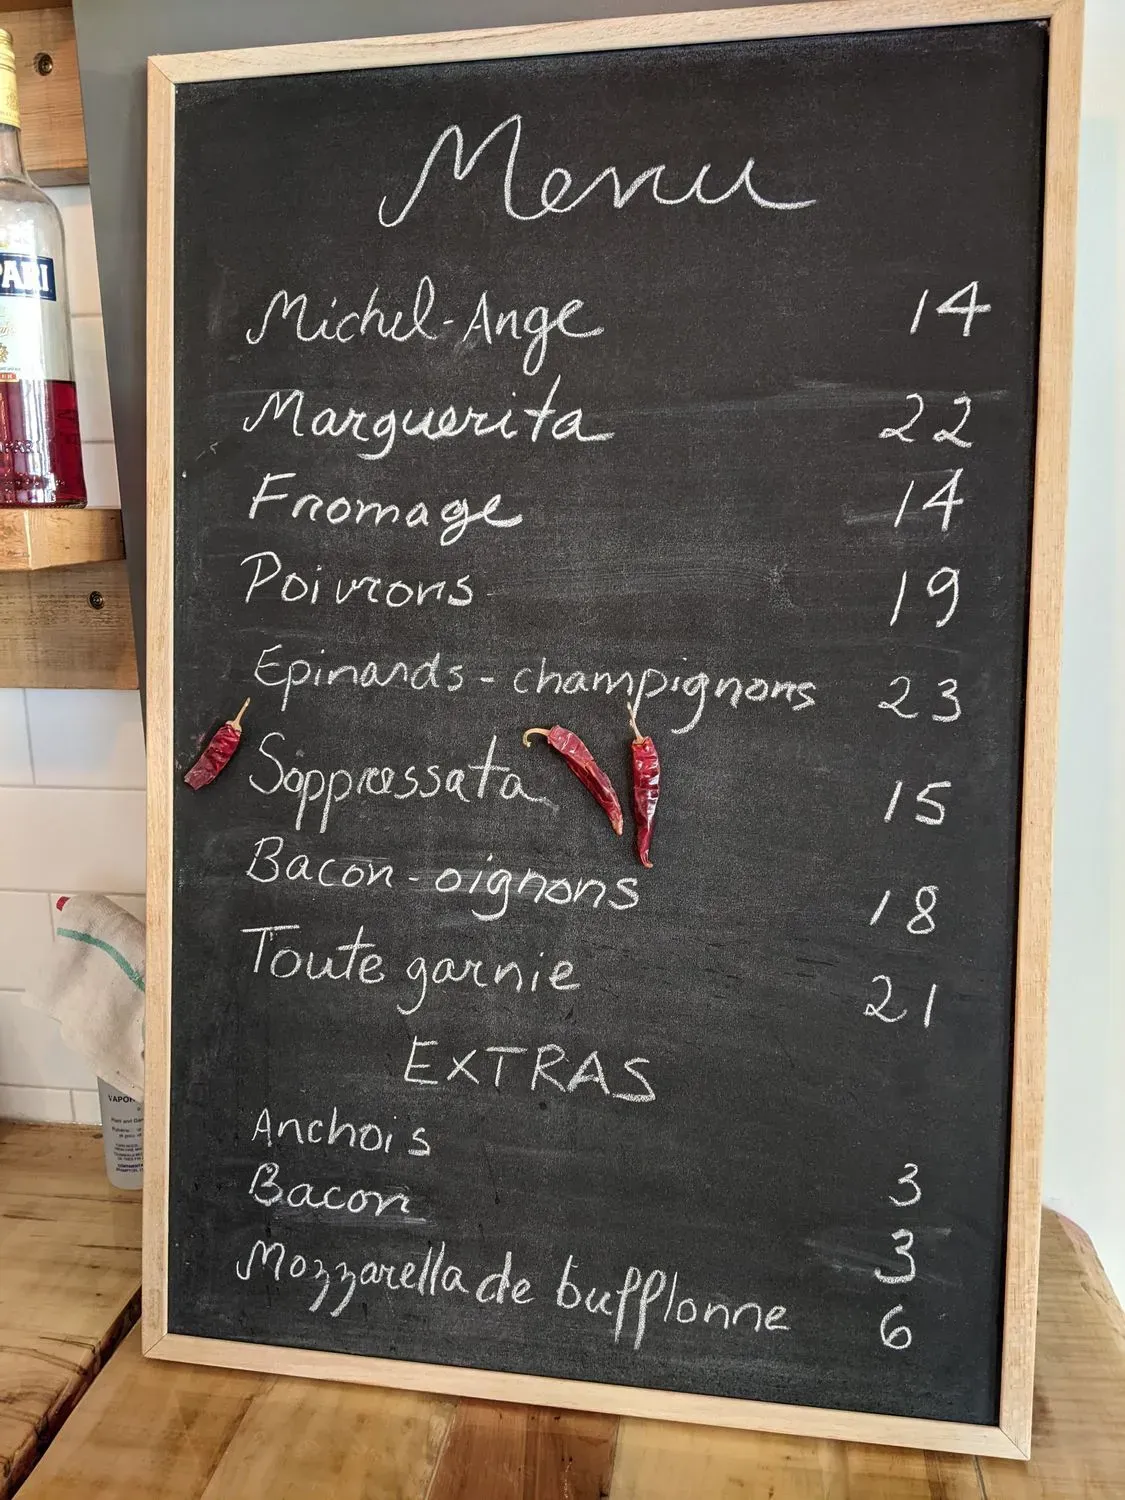 Menu
Michel-Ange 14
Marguerita 22
Fromage 14
Poivrons 19
Epinards - champignons 23
Soppressata 15
Bacon-oignons 18
Toute garnie 21
EXTRAS
Anchois 3
Bacon 3
Mozzarella de bufflonne 6
PARI
VAPOR